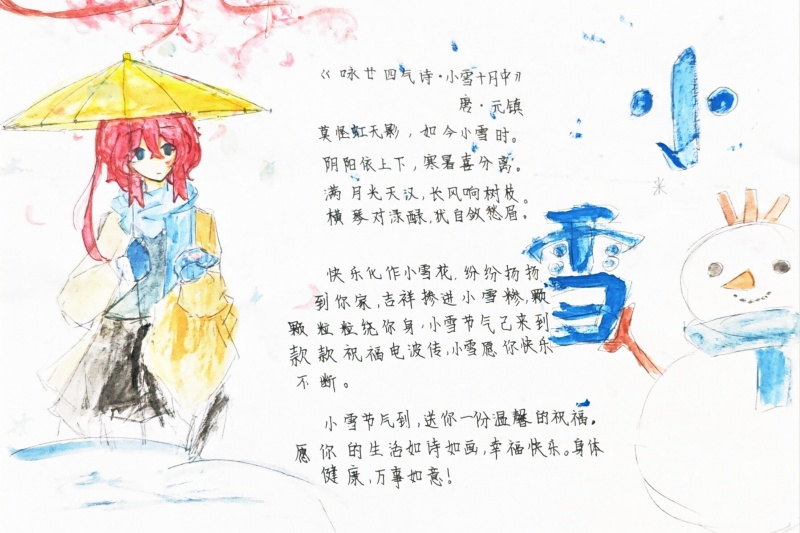 《咏廿四气诗·小雪十月中》
唐·元镇
莫怪虹无影,如今小雪时。
阴阳依上下,寒暑喜分离。
满月光天汉,长风响树枝。
横琴对渌醑,犹自敛愁眉。
快乐化作小雪花,纷纷扬扬
到你家,吉祥掺进小雪糁,颗
颗粒粒绕你身,小雪节气已来到
款款祝福电波传,小雪愿你快乐
不断。
小雪节气到,送你一份温馨的祝福。
愿你的生活如诗如画,幸福快乐。身体
健康,万事如意!
小
雪